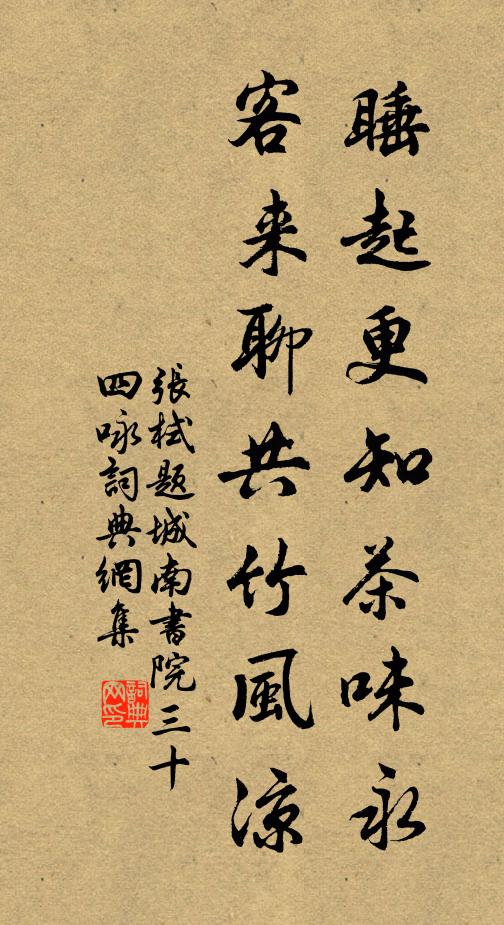 睡起更知茶味永
客来聊共竹風涼
張栻题城南書院三十
四咏詞典網集
詞典
网印